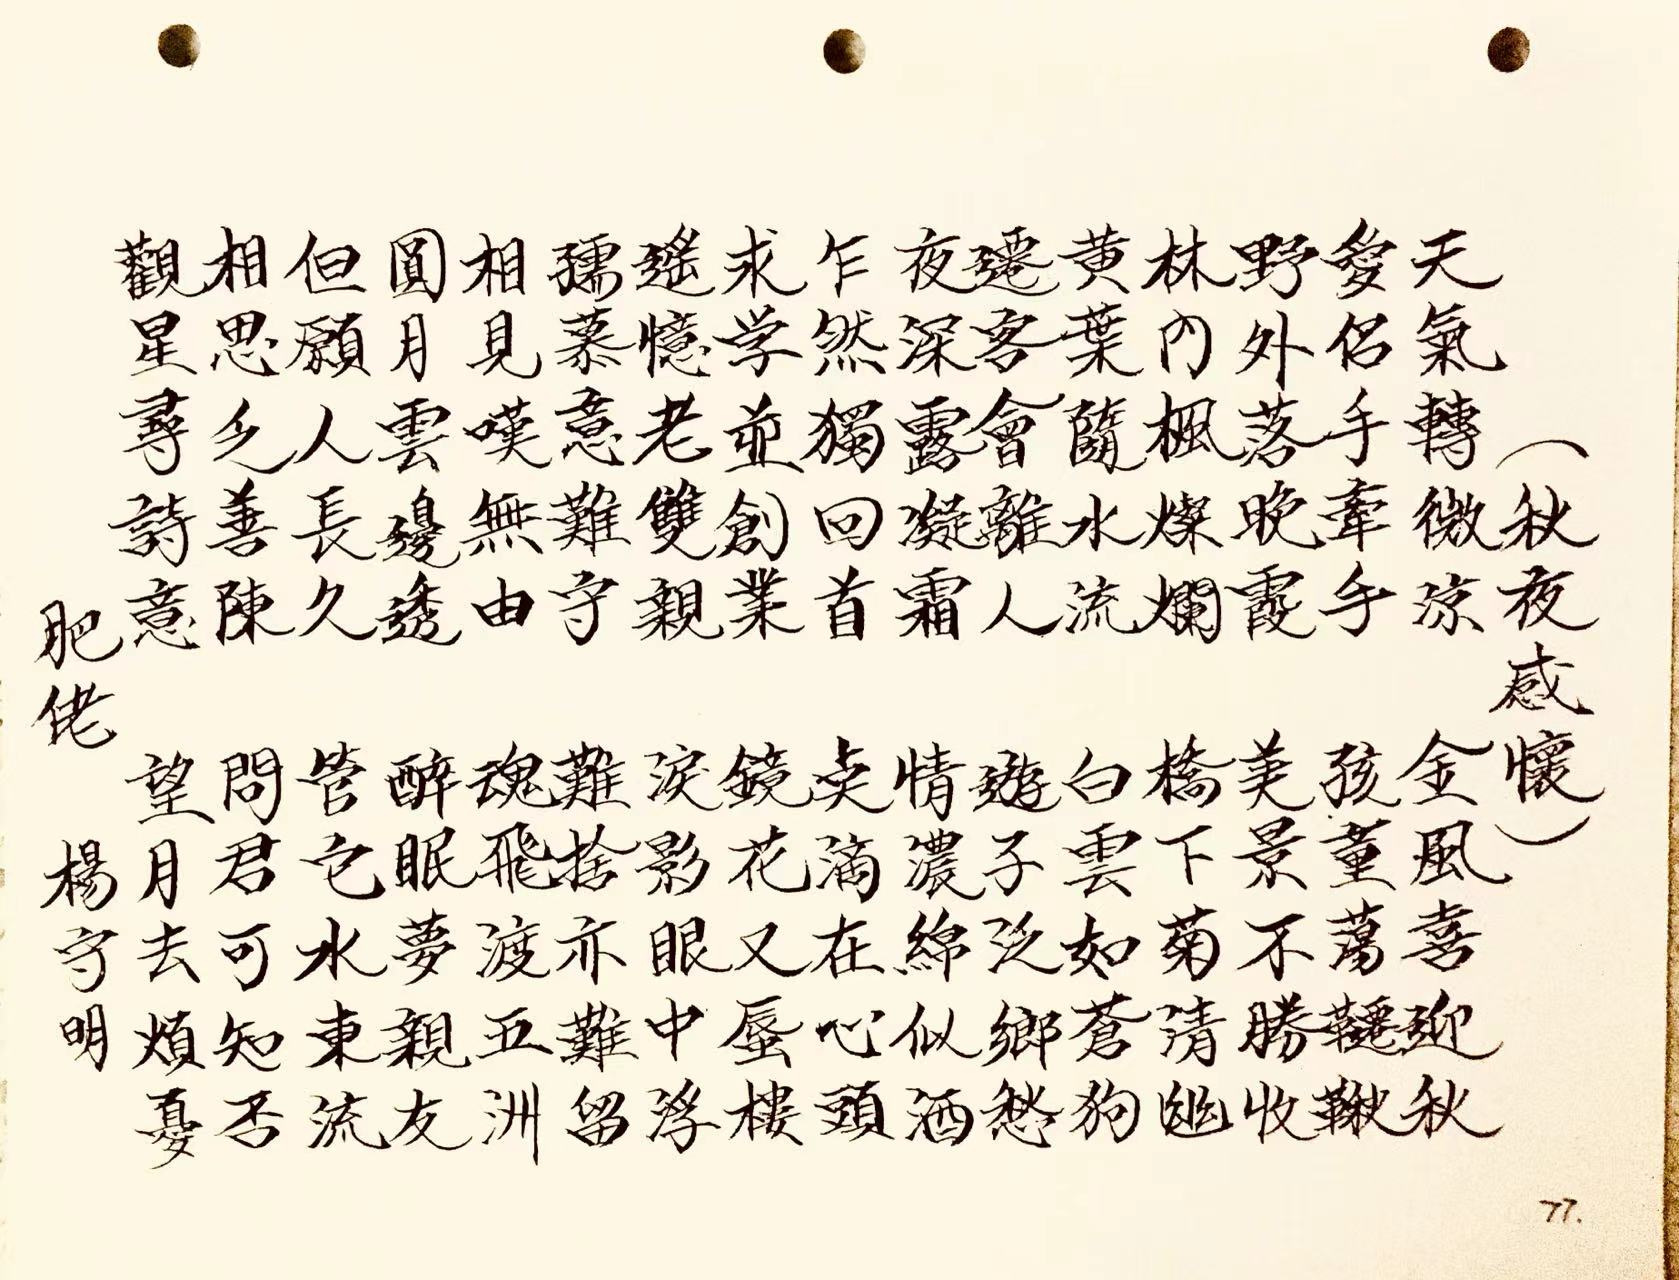 （秋夜感懷）
天氣轉微涼　金風喜迎秋
愛侶手牽手　孩董蕩韆鞦
野外落晚霞　美景不勝收
林內楓燦爛　橋下菊清幽
黃葉隨水流　白雲如蒼狗
遷客會離人　遊子泛鄉愁
夜深露凝霜　情濃綿似酒
乍然獨回首　奌滴在心頭
求学並創業　鏡花又蜃樓
遙憶老雙親　淚影眼中浮
孺慕意難守　難捨亦難留
相見嘆無由　魂飛渡五洲
圓月雲邊透　醉眠夢親友
但願人長久　管它水東流
相思乏善陳　問君可知否
觀星尋詩意　望月去煩憂
肥佬　楊守明
77.